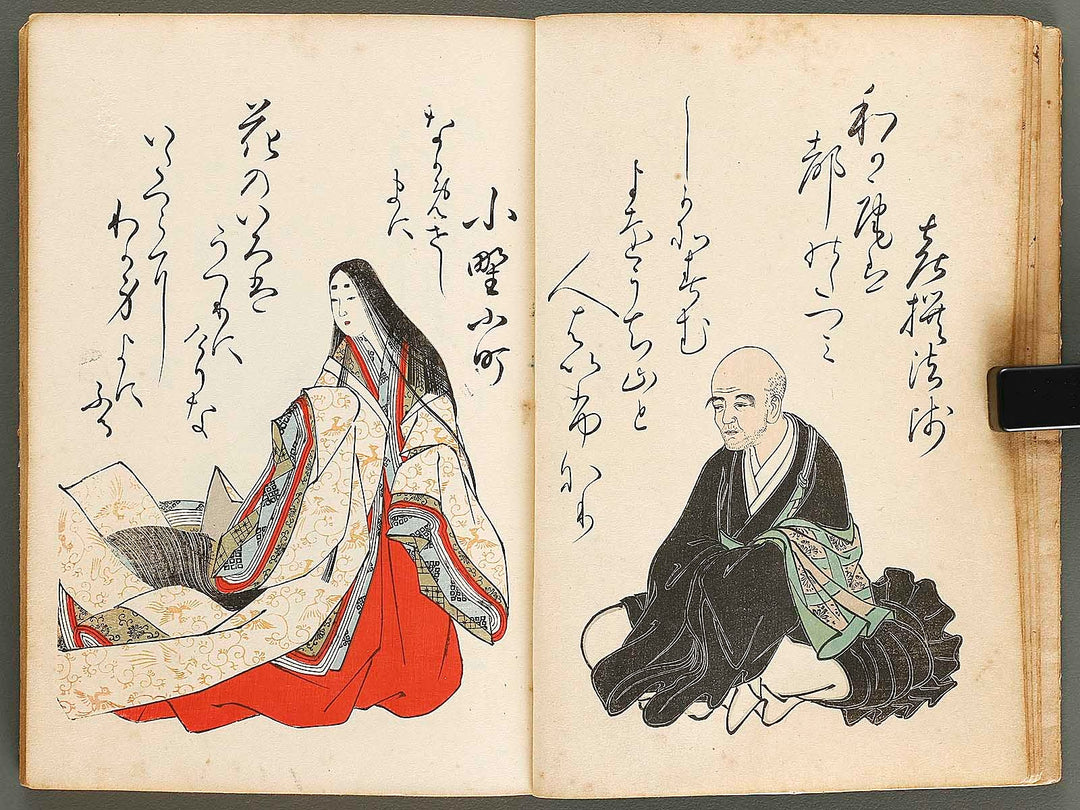 喜撰法師
和可庵は
都のたつミ
しかそ春む
よをうち山と
人はいふなり
小野小町
花のいろは
うつりに
けりな
いたつらに
わか身よに
ふる
なかめせし
まに